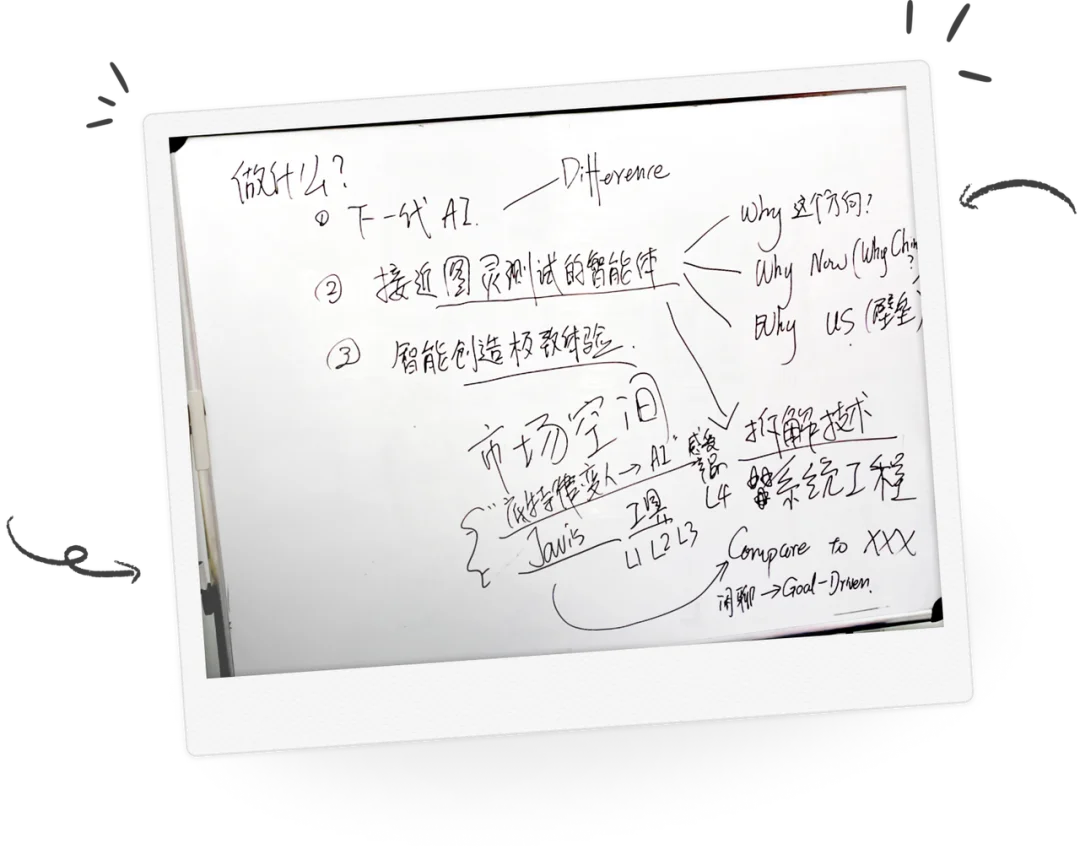 做什么?
① 下一代 AI.
Difference
② 接近图灵测试的智能体
Why 这个方向?
Why Now (Why Chin
?
Why US (壁垒)
③ 智能创造极致体验.
市场空间
"底特律变人→AI"
Javis
工具
L1 L2 L3
L4
拆解技术
系统工程
Compare to XXX
闲聊→Goal-Driven.